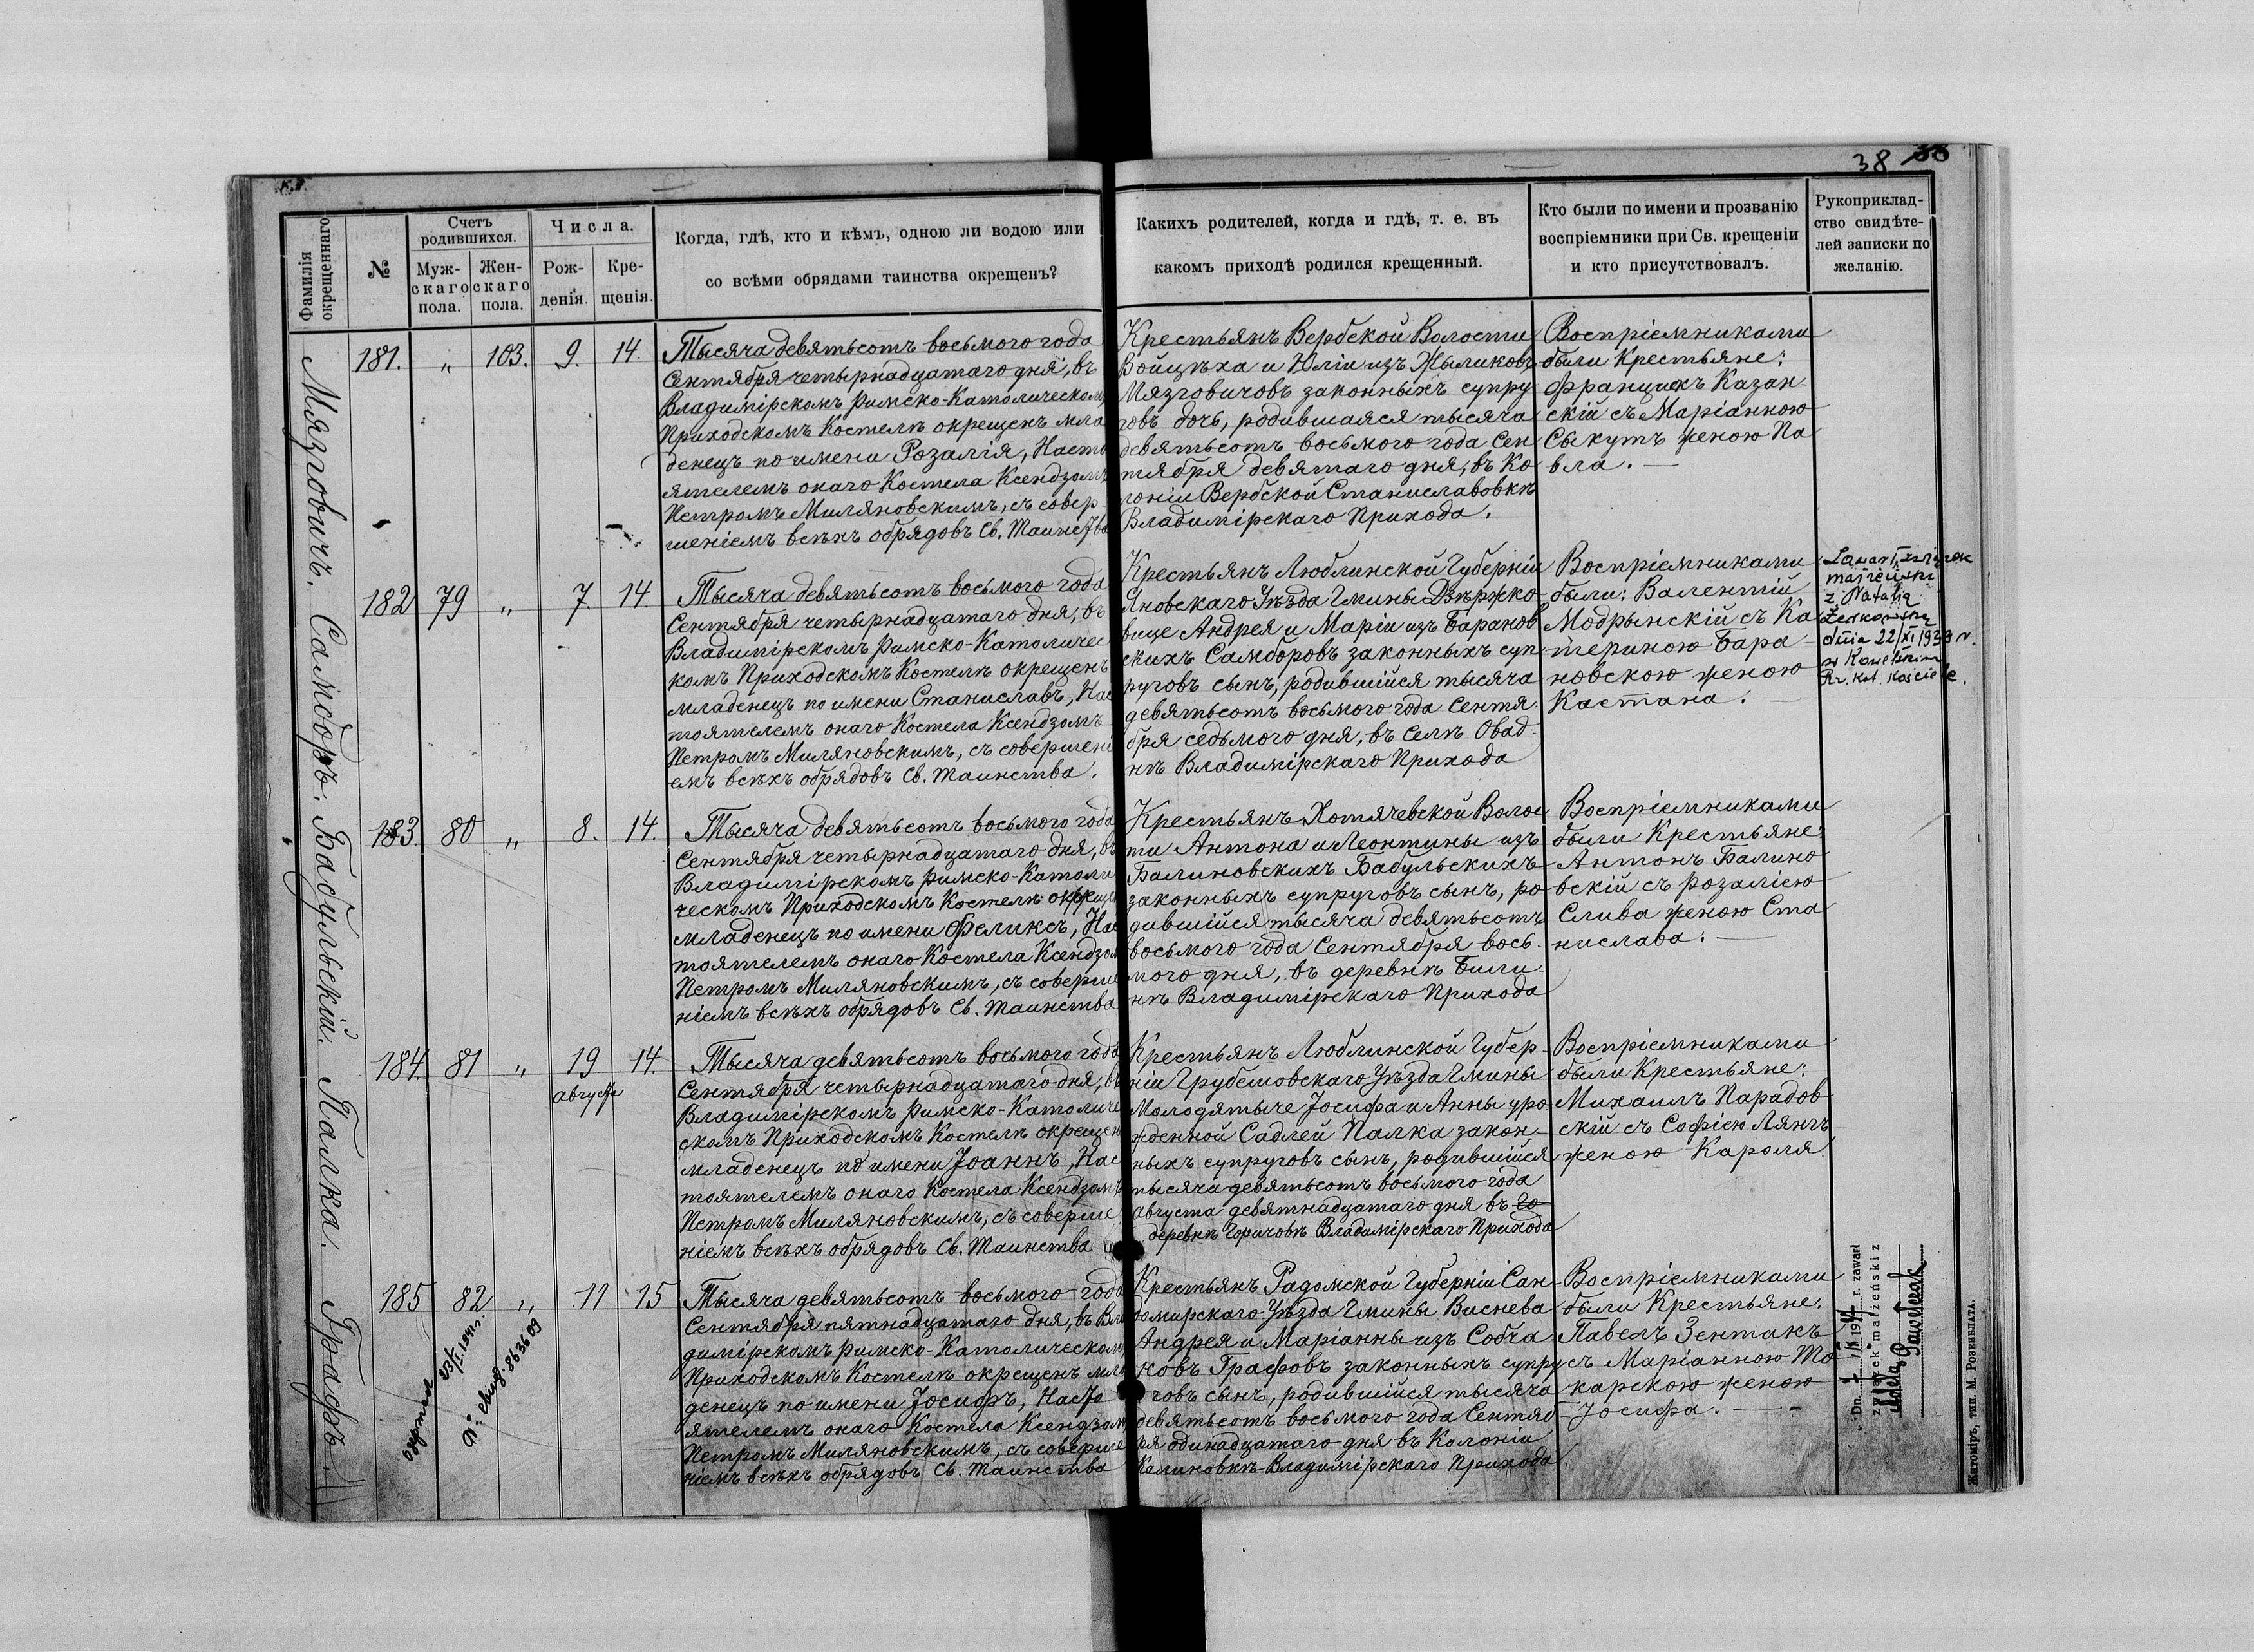 38
Фамилія окрещеннаго
№
Счетъ родившихся.
Муж-
скаго
пола.
Жен-
скаго
пола.
Числа.
Рож-
денія.
Кре-
щенія.
Когда, гдѣ, кто и кѣмъ, одною ли водою или
со всѣми обрядами таинства окрещенъ?
Какихъ родителей, когда и гдѣ, т. е. въ
какомъ приходѣ родился крещенный.
Кто были по имени и прозванію
воспріемники при Св. крещеніи
и кто присутствовалъ.
Рукоприклад-
ство свидѣте-
лей записки по
желанію.
Мязговичъ. Самборъ. Бабульскій. Палка. Графъ.
181. " 103. 9. 14.
Тысяча девятьсотъ восьмого года
Сентября четырнадцатаго дня, въ
Владимірскомъ Римско-Католическомъ
Приходскомъ Костелѣ окрещенъ мла
денецъ по имени Розалія, Насто
ятелемъ онаго Костела Ксендзомъ
Петромъ Миляновскимъ, съ совер
шеніемъ всѣхъ обрядовъ Св. Таинства
Крестьянъ Вербской Волости
Войцѣха и Юліи изъ Жыликовъ
Мязговичовъ законныхъ супру
говъ дочь, родившаяся тысяча
девятьсотъ восьмого года Сен
тября девятаго дня, въ Ко
лоніи Вербской Станиславовкѣ
Владимірскаго Прихода.
Воспріемниками
были Крестьяне:
Францишкъ Казан-
скій съ Маріанною
Сыкутъ женою Па
вла. —
182 79 " 7. 14.
Тысяча девятьсотъ восьмого года
Сентября четырнадцатаго дня, въ
Владимірскомъ Римско-Католичес
комъ Приходскомъ Костелѣ окрещенъ
младенецъ по имени Станиславъ, Нас
тоятелемъ онаго Костела Ксендзомъ
Петромъ Миляновскимъ, съ совершені
емъ всѣхъ обрядовъ Св. Таинства.
Крестьянъ Люблинской Губерніи
Яновскаго Уѣзда Гмины Дзѣржко-
вице Андрея и Маріи изъ Баранов
скихъ Самборовъ законныхъ суп-
руговъ сынъ, родившійся тысяча
девятьсотъ восьмого года Сентя-
бря седьмого дня, въ селѣ Овад-
нѣ Владимірскаго Прихода
Воспріемниками
были: Валентій
Модрынскій съ Ка
териною Бара-
новскою женою
Каетана. —
Zawarł związek
małżeński
z Natalią
dnia 22/XI 1939 r.
w Kowelskim
Rz. Kat. Kościele.
183. 80 " 8. 14.
Тысяча девятьсотъ восьмого года
Сентября четырнадцатаго дня, въ
Владимірскомъ Римско-Католи
ческомъ Приходскомъ Костелѣ окреще
младенецъ по имени Феликсъ, Нас
тоятелемъ онаго Костела Ксендзом
Петромъ Миляновскимъ, съ соверше
ніемъ всѣхъ обрядовъ Св. Таинства
Крестьянъ Хотячевской Волос
ти Антона и Леонтины изъ
Балиновскихъ Бабульскихъ
законныхъ супруговъ сынъ, ро-
дившійся тысяча девятьсотъ
восьмого года Сентября вось-
мого дня, въ деревнѣ Били-
нѣ Владимірскаго Прихода
Воспріемниками
были Крестьяне:
Антонъ Балино
вскій съ Розаліею
Слива женою Ста
нислава. —
184. 81 " 19 августа 14.
Тысяча девятьсотъ восьмого года
Сентября четырнадцатаго дня, въ
Владимірскомъ Римско-Католиче
скомъ Приходскомъ Костелѣ окрещен
младенецъ по имени Іоаннъ, Нас
тоятелемъ онаго Костела Ксендзомъ
Петромъ Миляновскимъ, съ соверше
ніемъ всѣхъ обрядовъ Св. Таинства
Крестьянъ Люблинской Губер-
ніи Грубешовскаго Уѣзда Гмины
Молодятыче Іосифа и Анны уро
жденной Садлей Палка закон-
ныхъ супруговъ сынъ, родившійся
тысяча девятьсотъ восьмого года
августа девятнадцатаго дня въ Го
деревнѣ Горичовѣ Владимірскаго Прихода
Воспріемниками
были Крестьяне:
Михаилъ Парадов
скій съ Софіею Лянгъ
женою Кароля.
185 82 " 11 15
Тысяча девятьсотъ восьмого года
Сентября пятнадцатаго дня, въ Вла
димірскомъ Римско-Католическомъ
Приходскомъ Костелѣ окрещенъ мла
денецъ по имени Іосифъ, Насто
ятелемъ онаго Костела Ксендзом
Петромъ Миляновскимъ, съ соверше
ніемъ всѣхъ обрядовъ Св. Таинства
Крестьянъ Радомской Губерніи Сан-
домирскаго Уѣзда Гмины Виснева
Андрея и Маріанны изъ Собча
ковъ Графовъ законныхъ супру
говъ сынъ, родившійся тысяча
девятьсотъ восьмого года Сентяб
ря одинадцатаго дня въ Колоніи
Калиновкѣ Владимірскаго Прихода.
Воспріемниками
были Крестьяне:
Павелъ Зентакъ
съ Маріанною То
карскою женою
Іосифа. —
Dn. r. zawarł
związek małżeński z
Adelą
Pawłczak
Житоміръ, тип. М. Розенблата.